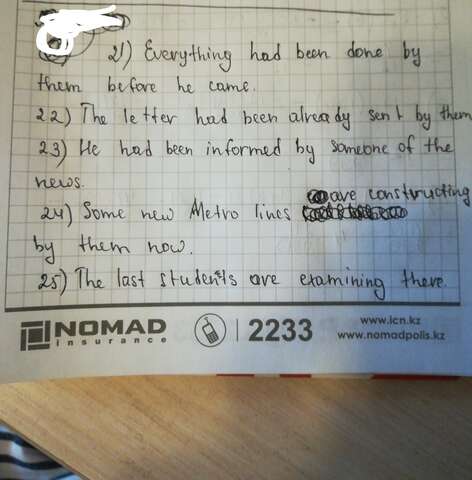 21) Everything had been done by
them before he came.
22) The letter had been already sent by them
23) He had been informed by someone of the
news.
24) Some new Metro lines are constructing
by them now.
25) The last students are examining there.
NOMAD
insurance
2233
www.icn.kz
www.nomadpolis.kz